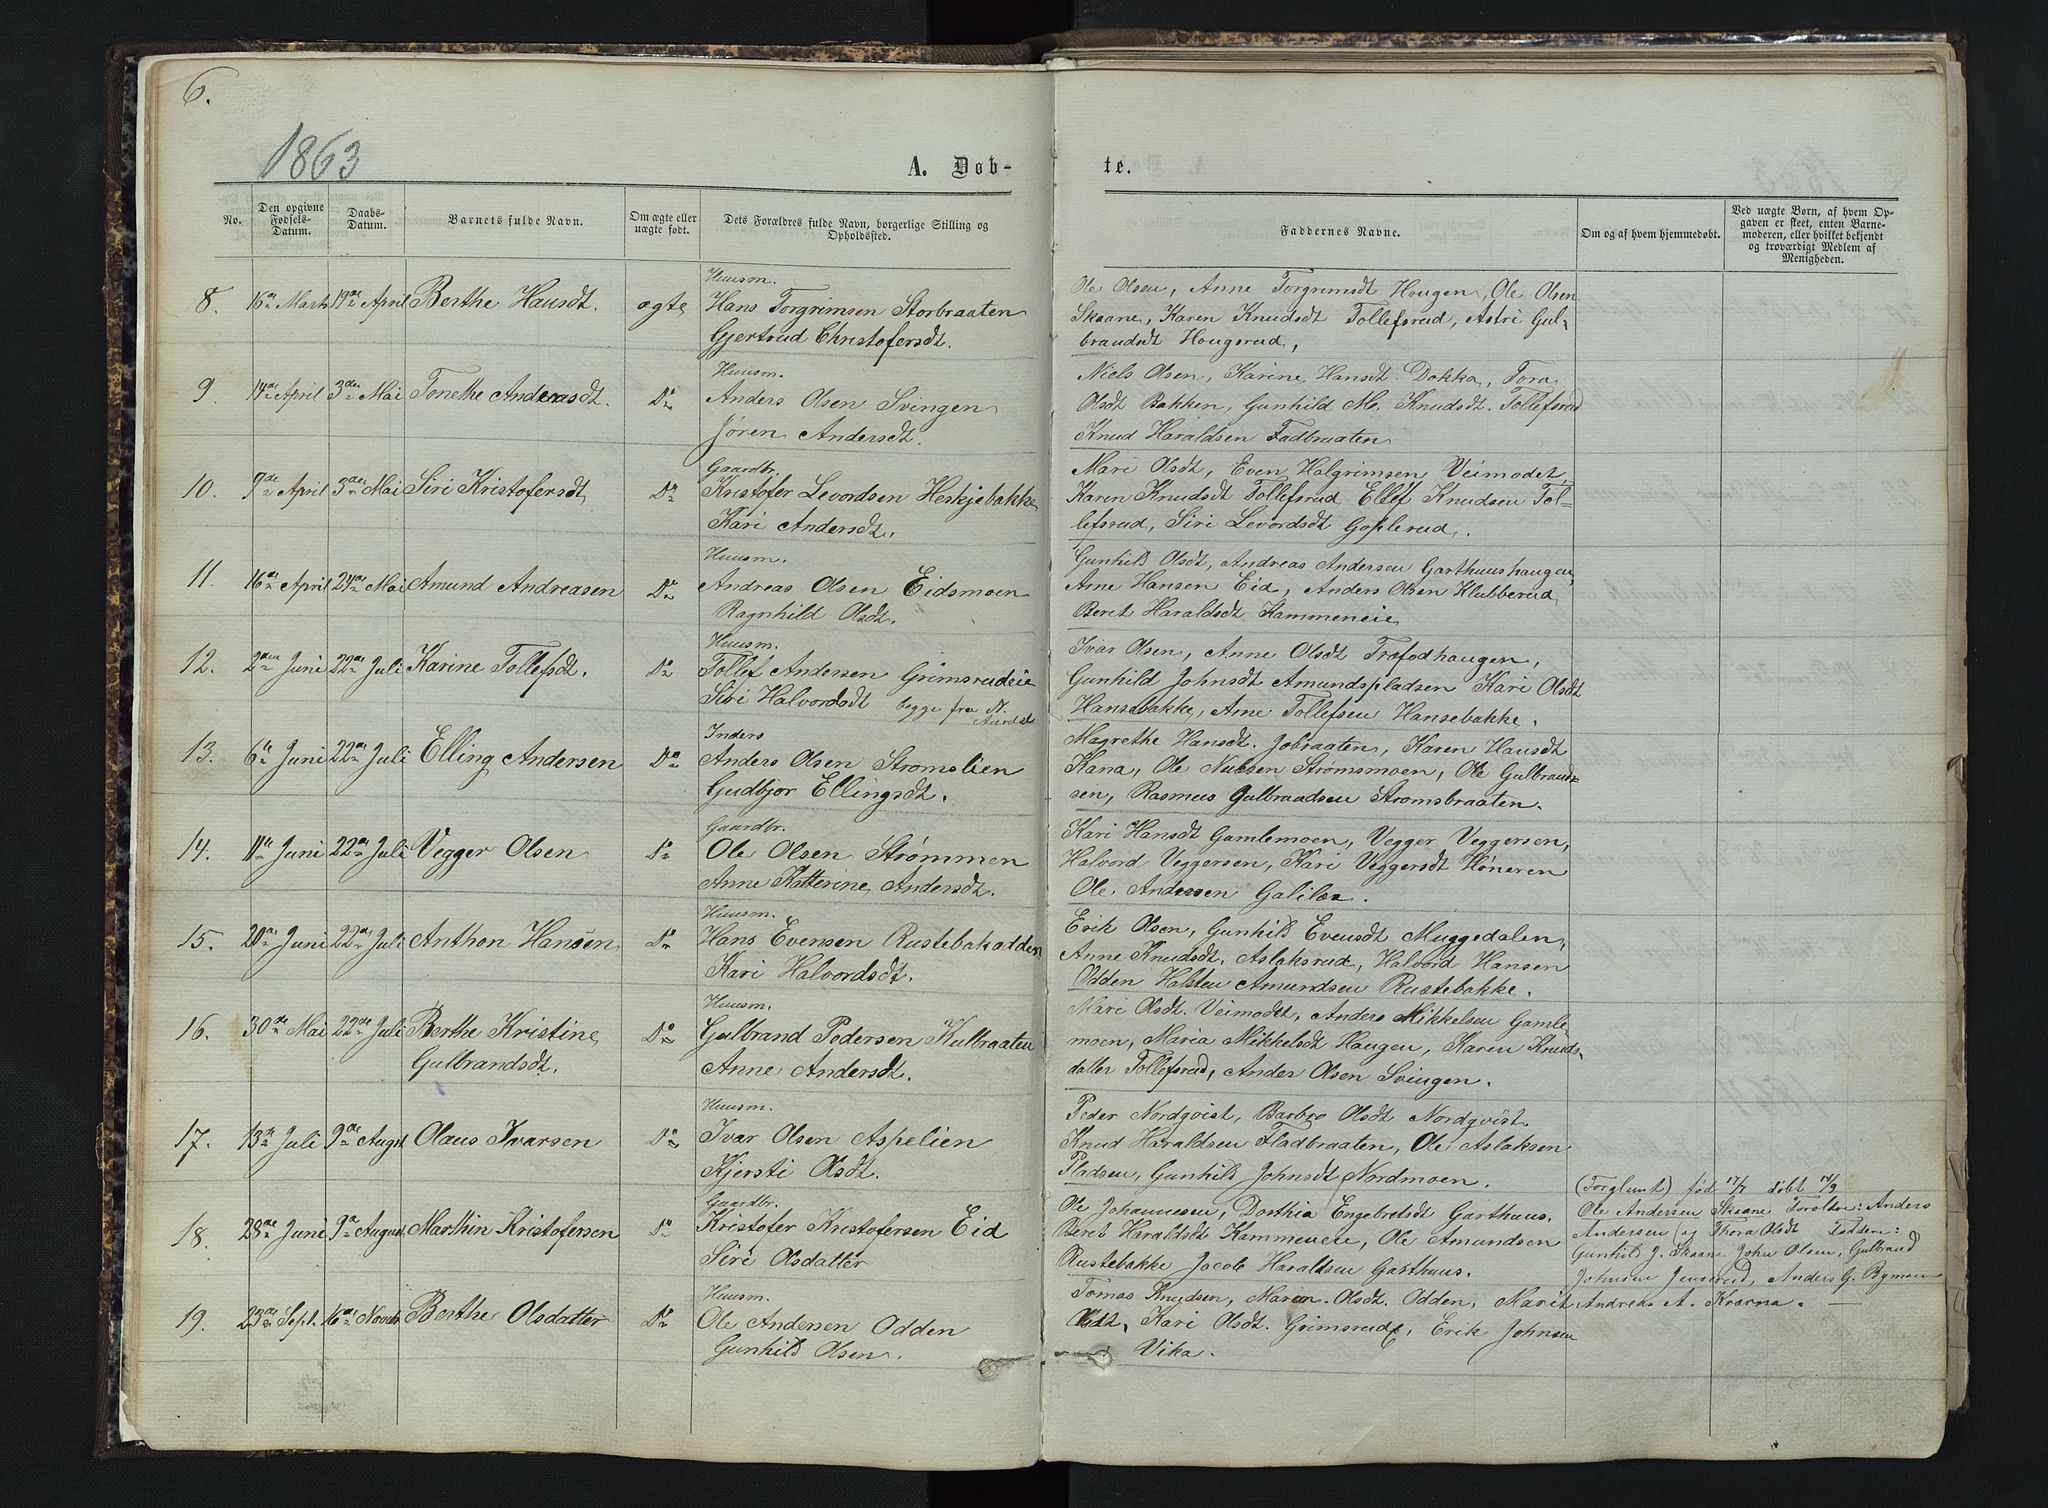 6.
1863
A. Døb-
te.
No.
Den opgivne Fødsels-Datum.
Daabs-Datum.
Barnets fulde Navn.
Om ægte eller uægte født.
Dets Forældres fulde Navn, borgerlige Stilling og Opholdssted.
Faddernes Navne.
Om og af hvem hjemmedøbt.
Ved uægte Børn, af hvem Op-
gaven er skeet, enten Barne-
moderen, eller hvilket bekjendt
og troværdigt Medlem af
Menigheden.
Huusm.
8. 16de Marts 19de April Berthe Hansdt. ægte Hans Torgrimsen Storbraaten
Gjertrud Christofersdt.
Ole Olsen, Anne Torgrimsdt Hougen, Ole Olsen
Skaane, Karen Knudsdt Tollefsrud, Astri Gul-
brandsdt Hougsrud,
Huusm.
9. 14de April 3die Mai Tonethe Andersdt. Do Anders Olsen Svingen
Jøren Andersdt.
Niels Olsen, Karine Hansdt. Dokka, Tora
Olsdt Bakken, Gunhild M. Knudsdt. Tollefsrud
Knud Haraldsen Fladbraaten
Gaardbr.
10. 7de April 3die Mai Siri Kristofersdt Do Kristofer Levordsen Heskjebakke
Kari Andersdt.
Mari Olsdt, Even Halgrimsen Veimodet,
Karen Knudsdt Tollefsrud Ellef Knudsen Tol-
lefsrud, Siri Levordsdt Goplerud.
Huusm.
11. 16de April 24de Mai Amund Andreasen Do Andreas Olsen Eidsmoen
Ragnhild Olsdt.
Gunhild Olsdt, Andreas Andersen Garthuushaugen,
Arne Hansen Eid, Anders Olsen Klubberud,
Beret Haraldsdt Kammeneie
Huusm.
12. 2den Juni 22de Juli Karine Tollefsdt. Do Tollef Andersen Grimsrudeie
Siri Halvordsdt begge fra N. Aurdal
Ivar Olsen, Anne Olsdt Trøfodhaugen,
Gunhild Johnsdt Amundspladsen Kari Olsdt
Hansebakke, Arne Tollefsen Hansebakke.
Inders
13. 6te Juni 22de Juli Elling Andersen Do Anders Olsen Strømslien
Gudbjor Ellingsdt.
Magrethe Hansdt. Jobraaten, Karen Hansdt
Kana, Ole Nielsen Strømsmoen, Ole Gulbrand-
sen, Rasmus Gulbrandsen Strømsbraaten.
Gaardbr.
14. 11te Juni 22de Juli Vegger Olsen Do Ole Olsen Strømmen
Anne Katterine Andersdt.
Kari Hansdt Gamlemoen, Vegger Veggersen,
Halvord Veggersen, Kari Veggersdt Høneren
Ole Andersen Galilæa.
Huusm.
15. 20de Juni 22de Juli Anthon Hansen Do Hans Evensen Rustebakodden
Kari Halvordsdt.
Erik Olsen, Gunhild Evensdt Muggedalen,
Anne Knudsdt. Aslaksrud, Halvord Hansen
Odden Halsten Amundsen Rustebakke.
Huusm.
16. 30de Mai 22de Juli Berthe Kristine Do Gulbrand Pedersen Kulbraaten
Gulbrandsdt. Anne Andersdt.
Mari Olsdt. Veimodet, Anders Mikkelsen Gamle-
moen, Maria Mikkelsdt Haugen, Karen Knuds-
datter Tollefsrud, Ander Olsen Svingen.
Huusm.
17. 13de Juli 9de August Olaus Ivarsen Do Ivar Olsen Aspelien
Kjersti Olsdt.
Peder Nordqvist, Barbro Olsdt Nordqvist.
Knud Haraldsen Fladbraaten, Ole Aslaksen
Pladsen, Gunhild Johnsdt Nordmoen.
Gaardbr.
18. 28de Juni 9de August Marthin Kristofersen Do Kristofer Kristofersen Eid
Siri Olsdatter
Ole Johannesen, Dorthia Engebretsdt Garthuus.
Beret Haraldsdt Kammeneie, Ole Amundsen
Rustebakke Jacob Haraldsen Garthuus.
(Forglemt) fød 17/7 døbt 14/9
Ole Andersen Skaane Forældre: Anders
Andersen og Thora Olsdt Faddere:
Gunhild J. Skaane John Olsen, Gulbrand
Johnsen Jenserud, Anders G. Bymoen
Andreas A. Kværna. —
Huusm.
19. 23de Sept. 6te Novbr Berthe Olsdatter Do Ole Andersen Odden
Gunhild Olsen.
Tomas Knudsen, Maren Olsdt. Odden, Marit
Olsdt, Kari Olsdt. Grimsrud, Erik Johnsen
Vika.